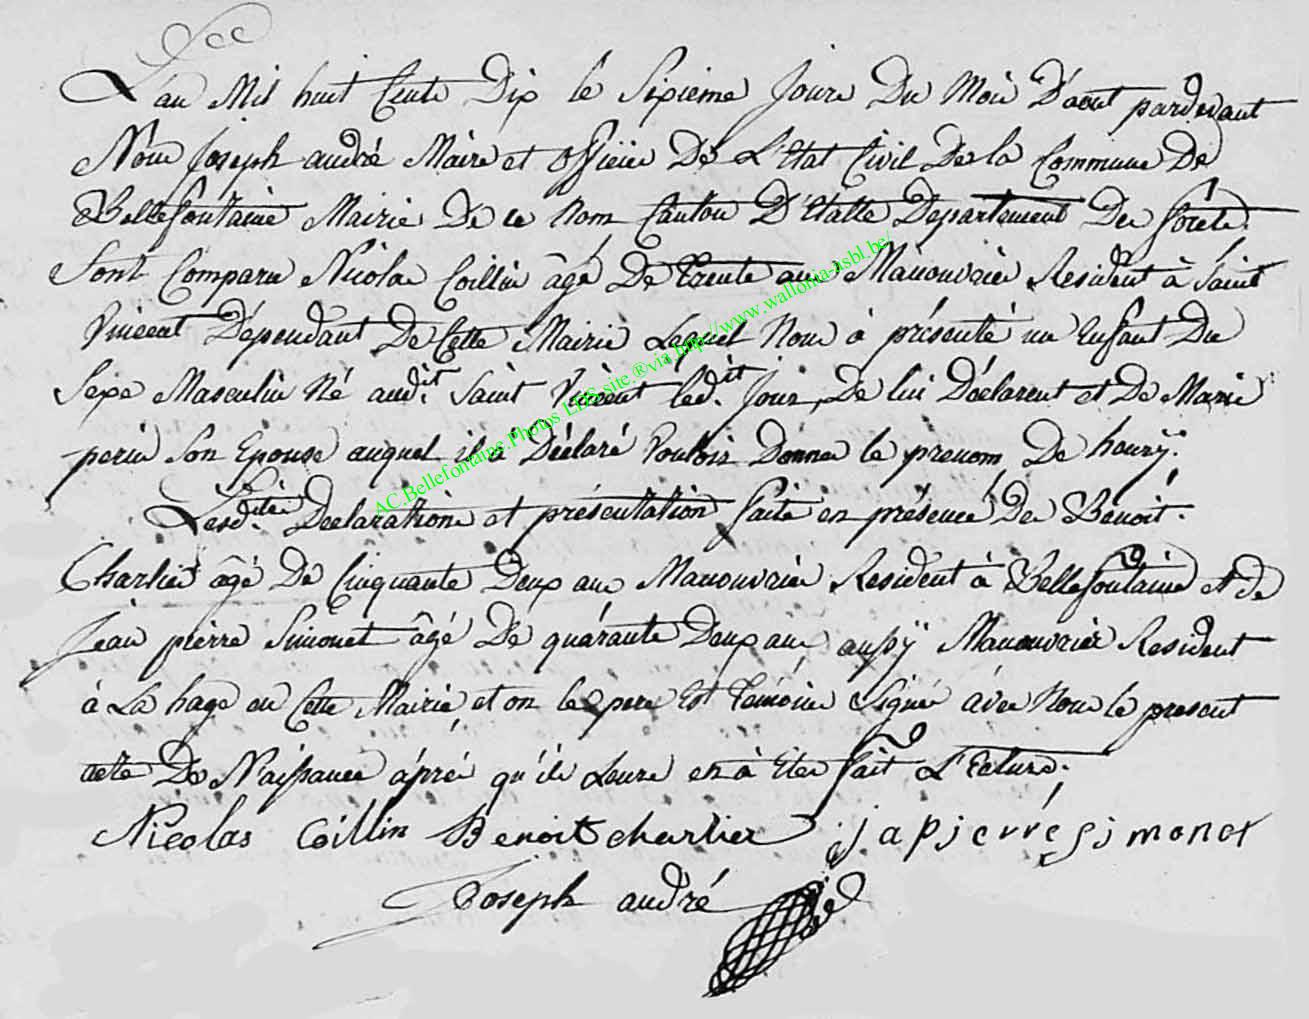 L'an Mil huit Cents Dix le Sixieme Jours Du Mois D'aout pardevant
Nous Joseph andré Maire et officier De L'Etat Civil De la Commune De
Bellefontaine Mairie De ce Nom Canton D'Etalle Departement Des forêts
Sont Comparu Nicolas Coillin âgé De trente ans Manouvrier Resident à Saint
Vincent Dépendant De Cette Mairie Lequel Nous à présenté un Enfant Du
Sexe Masculin Né audit. Saint Vincent ledit. Jour, De lui Déclarent et De Marie
perin Son Epouse auquel il à Déclaré Vouloir Donner le prenom De henrÿ.
Lesdites. Declarations et présentation faite en présence De Benoit.
Charlier âgé De Cinquante Deux ans Manouvrier Resident à Bellefontaine et de
Jean pierre Simonet âgé De quarante Deux ans aussÿ Manouvrier Resident
à La hage en Cette Mairie et on le pere Et Témoins Signé avec Nous le present
acte De Naissance après qu'ils Leure en à Eter fait L'Ecture.
Nicolas Coillin Benoit charlier japierre simonet
Joseph andré
AC.Bellefontaine.Photos LDS site.®via http://www.wallonia-asbl.be/